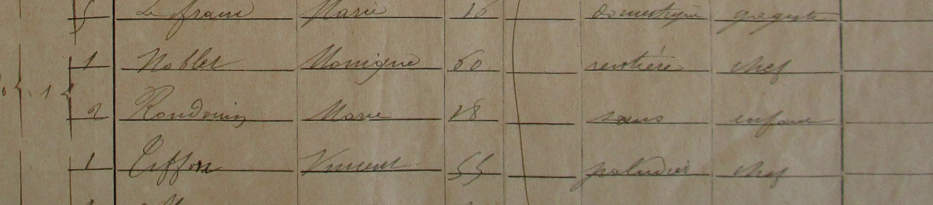 5 Le franc Marie 16 domestique gagiste
1 Noblet Monique 60 rentière chef
2 Rondouin Marie 28 sans enfant
1 Tiffon Vincent 55 paludier chef